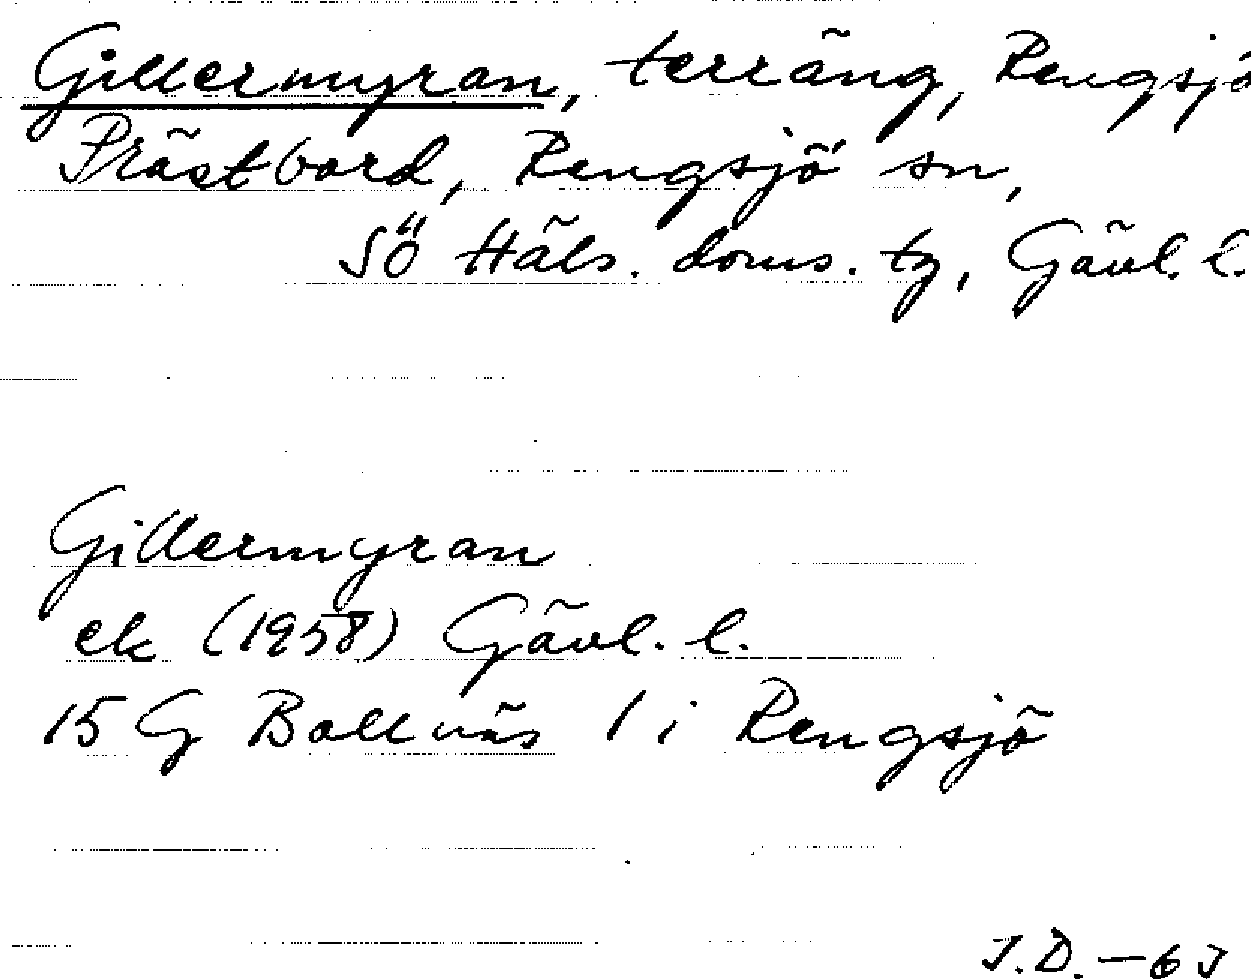 Gillermyran, terräng, Rengsjö
Prästbord, Rengsjö sn,
SÖ Häls. doms. tg, Gävl. l.
Gillermyran
ek (1958) Gävl. l.
15 G Bollnäs 1 i Rengsjö
J.D. – 63